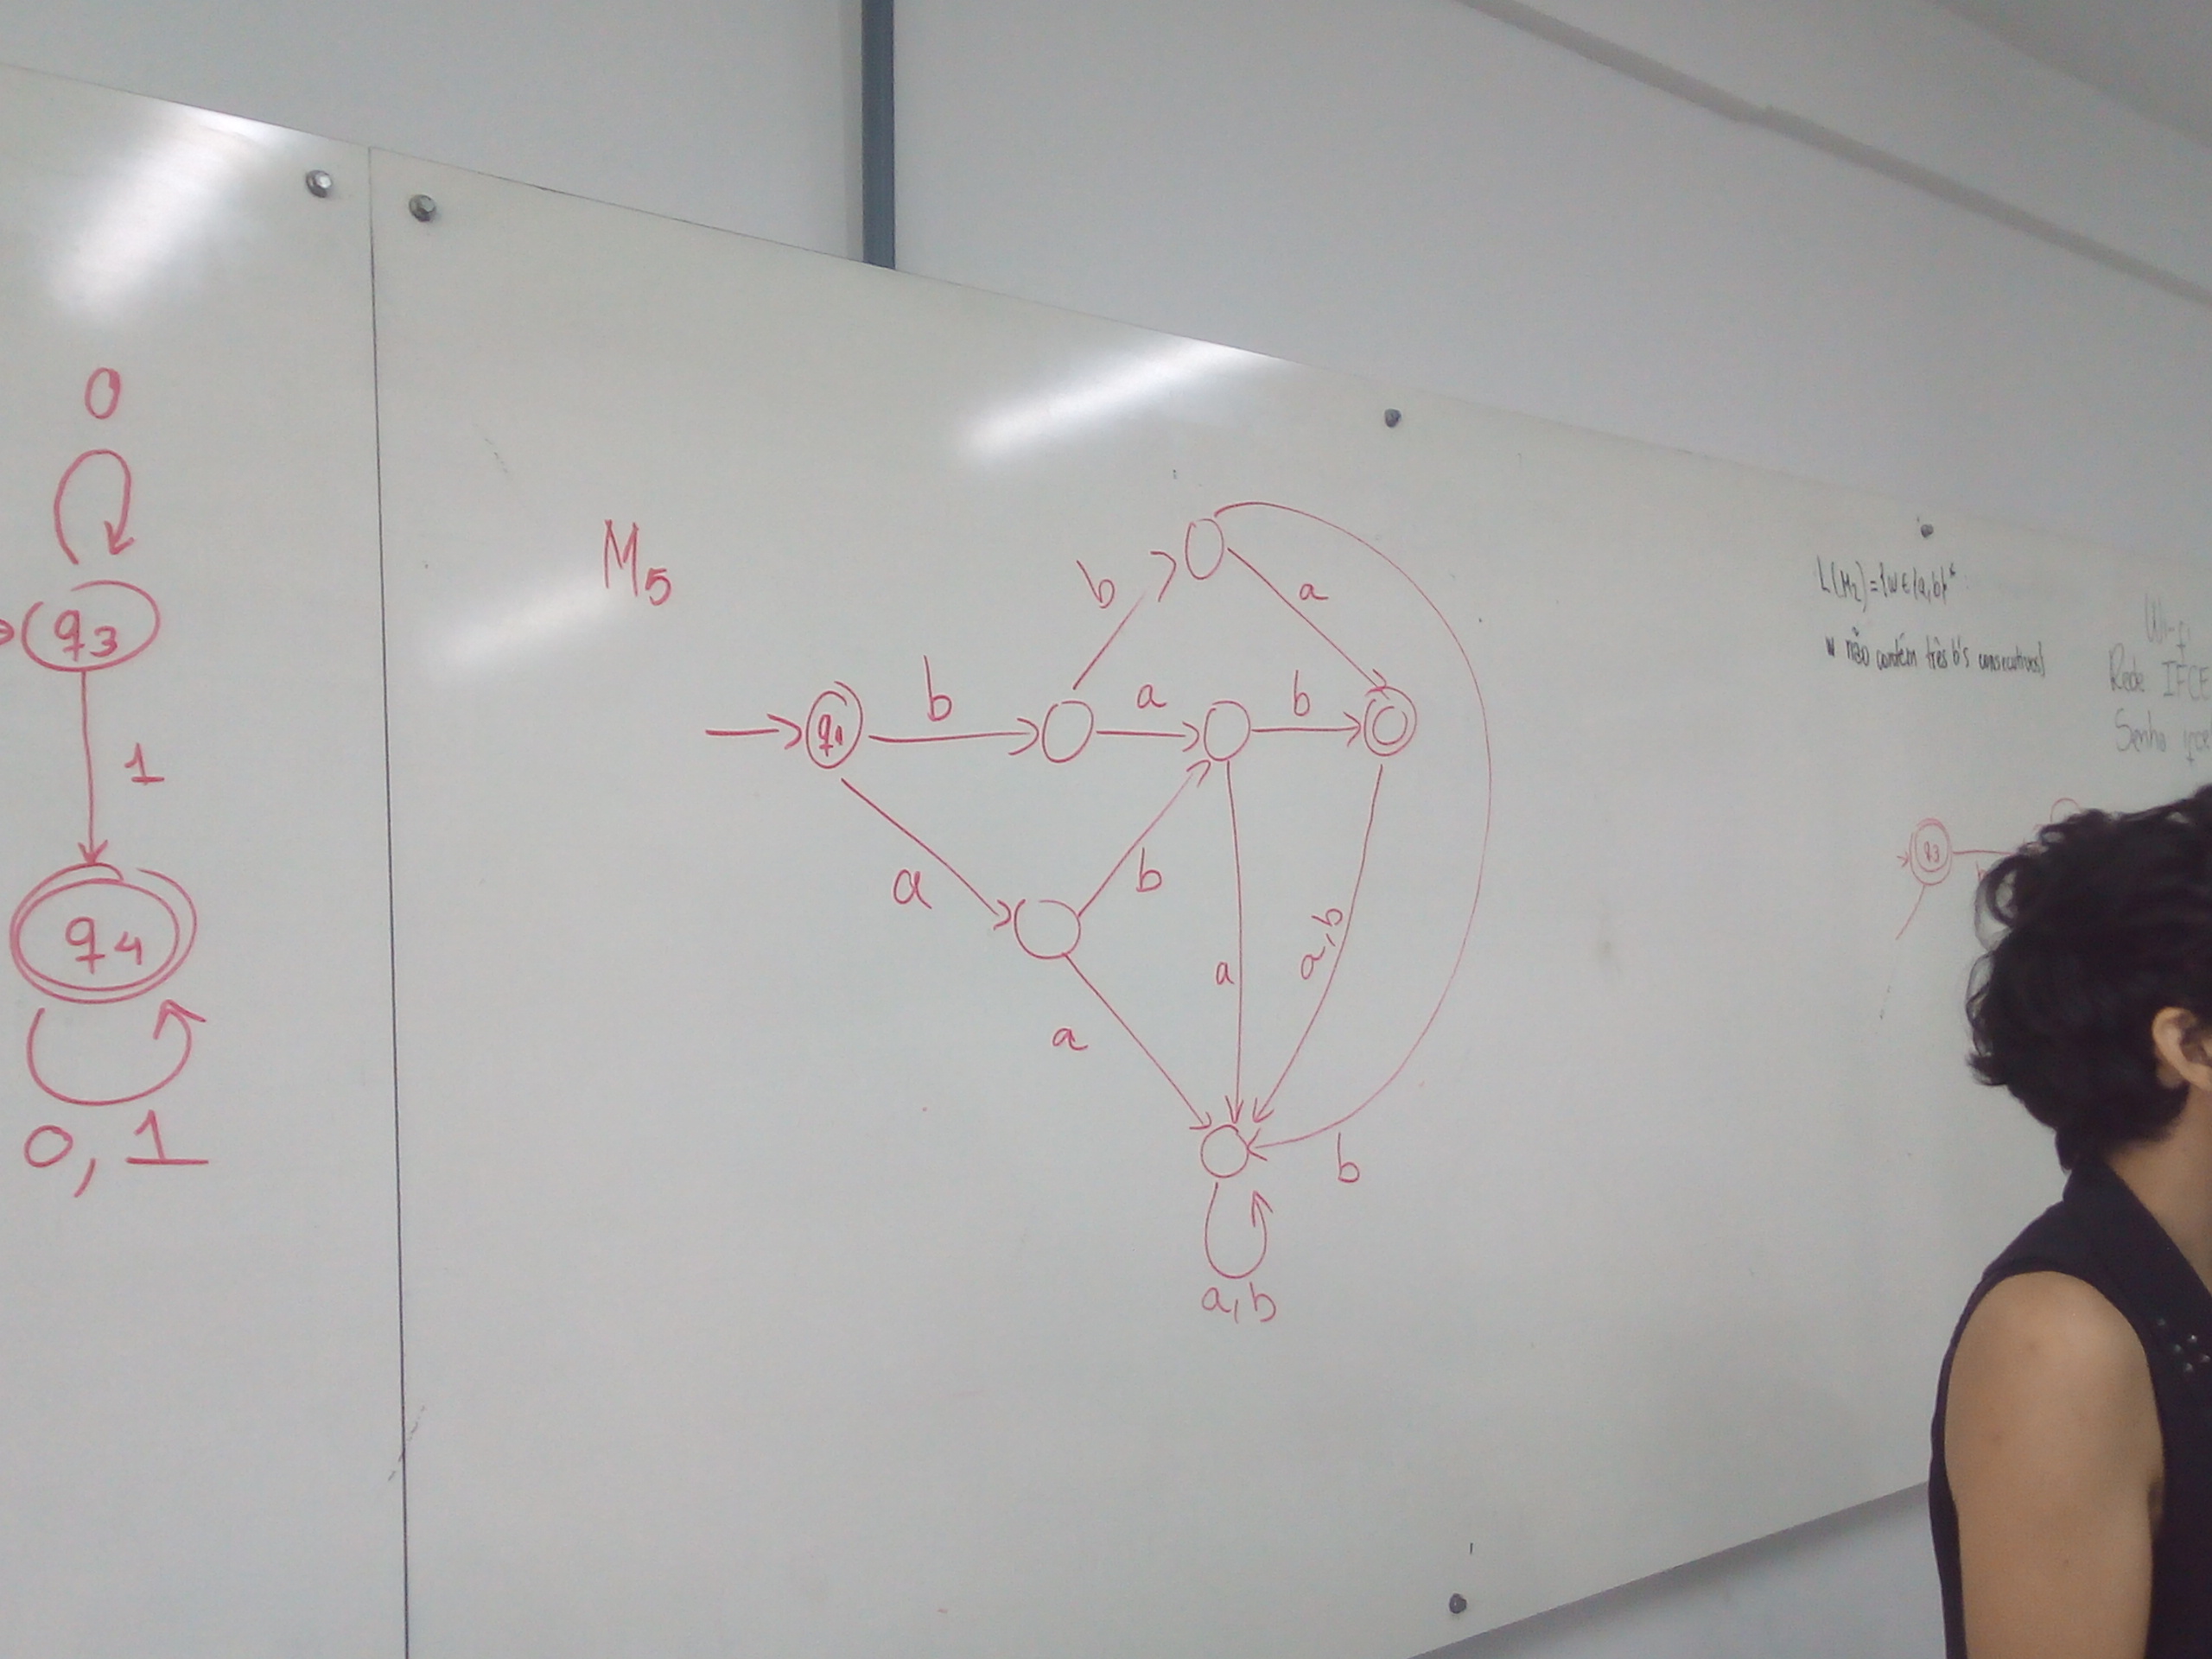 0
q3
1
q4
0, 1
M5
b
a
q1
b
a
b
a
b
a
a
a,b
b
a,b
L(M2)={w ∈ {a,b}*:
w não contém três b's consecutivos}
Wi-fi
Rede IFCE
Senha
q3
b